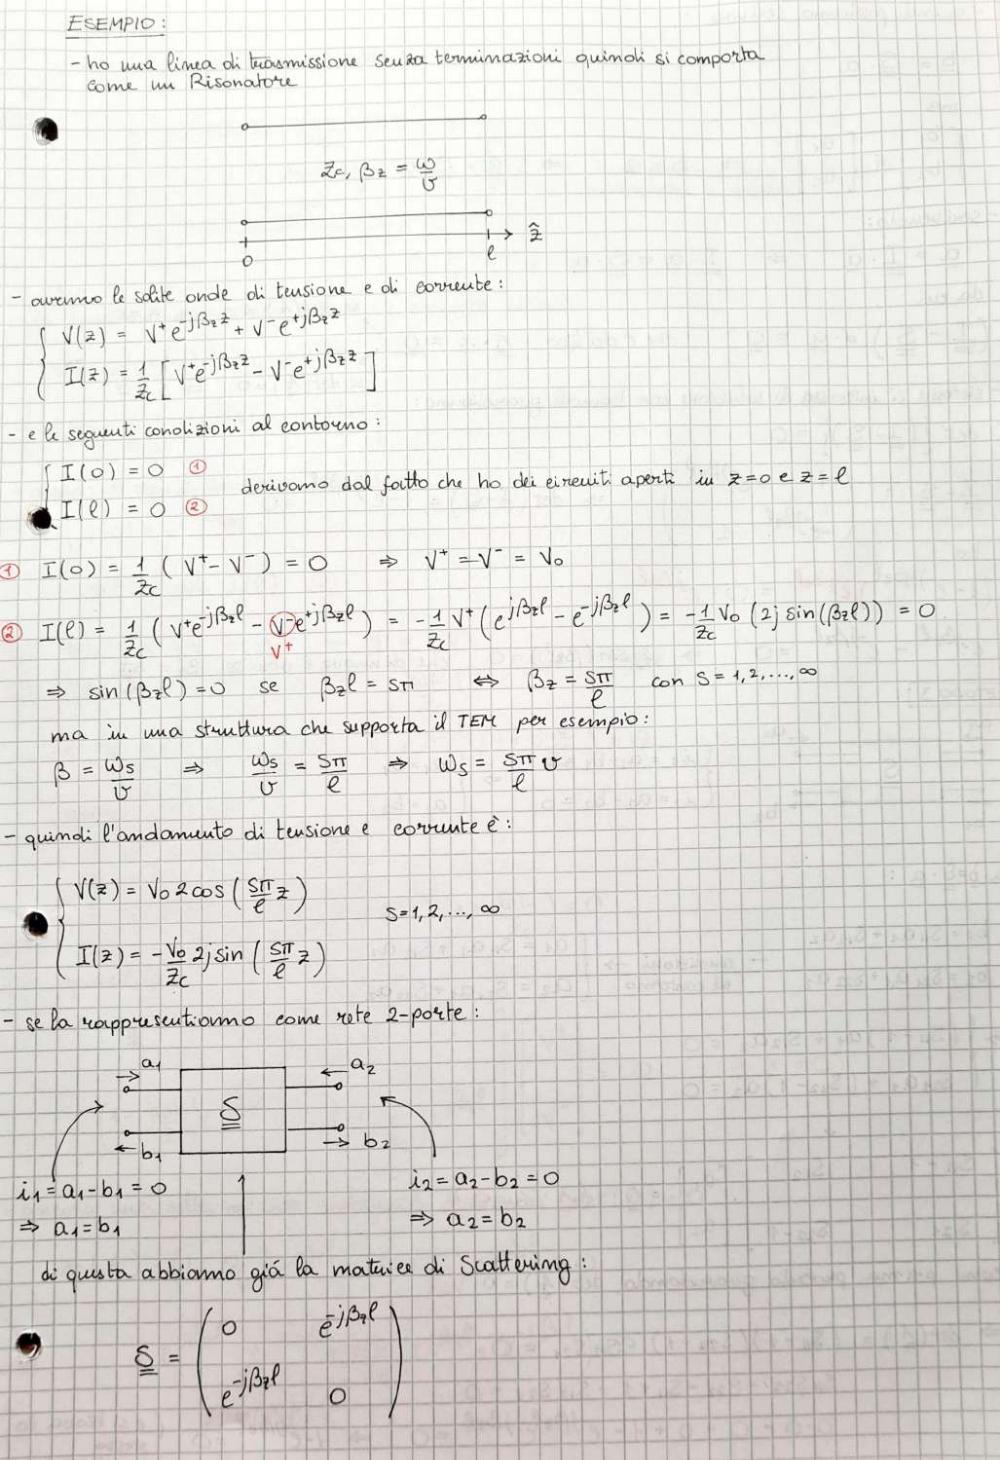 ESEMPIO:
- ho una linea di trasmissione senza terminazioni quindi si comporta
come un Risonatore
Zc, βz = ω/v
ẑ
0 ℓ
- avremo le solite onde di tensione e di corrente:
V(z) = V⁺e^{-jβz z} + V⁻e^{+jβz z}
I(z) = 1/Zc [V⁺e^{-jβz z} - V⁻e^{+jβz z}]
- e le seguenti condizioni al contorno:
I(0) = 0 ①
derivano dal fatto che ho dei circuiti aperti in z=0 e z=ℓ
I(ℓ) = 0 ②
① I(0) = 1/Zc (V⁺ - V⁻) = 0 ⇒ V⁺ = V⁻ = V₀
② I(ℓ) = 1/Zc (V⁺e^{-jβzℓ} - V⁻e^{+jβzℓ}) = -1/Zc V⁺ (e^{jβzℓ} - e^{-jβzℓ}) = -1/Zc V₀ (2j sin(βzℓ)) = 0
V⁺
⇒ sin(βzℓ) = 0 se βzℓ = sπ ⇔ βz = sπ/ℓ con s = 1,2,...,∞
ma in una struttura che supporta il TEM per esempio:
β = ωs/v ⇒ ωs/v = sπ/ℓ ⇒ ωs = sπ/ℓ v
- quindi l'andamento di tensione e corrente è:
V(z) = V₀ 2 cos (sπ/ℓ z)
s=1,2,...,∞
I(z) = - V₀/Zc 2j sin (sπ/ℓ z)
- se la rappresentiamo come rete 2-porte:
a₁ a₂
S
b₁ b₂
i₁ = a₁ - b₁ = 0 i₂ = a₂ - b₂ = 0
⇒ a₁ = b₁ ⇒ a₂ = b₂
di questa abbiamo già la matrice di Scattering:
0 e^{-jβzℓ}
S =
e^{-jβzℓ} 0